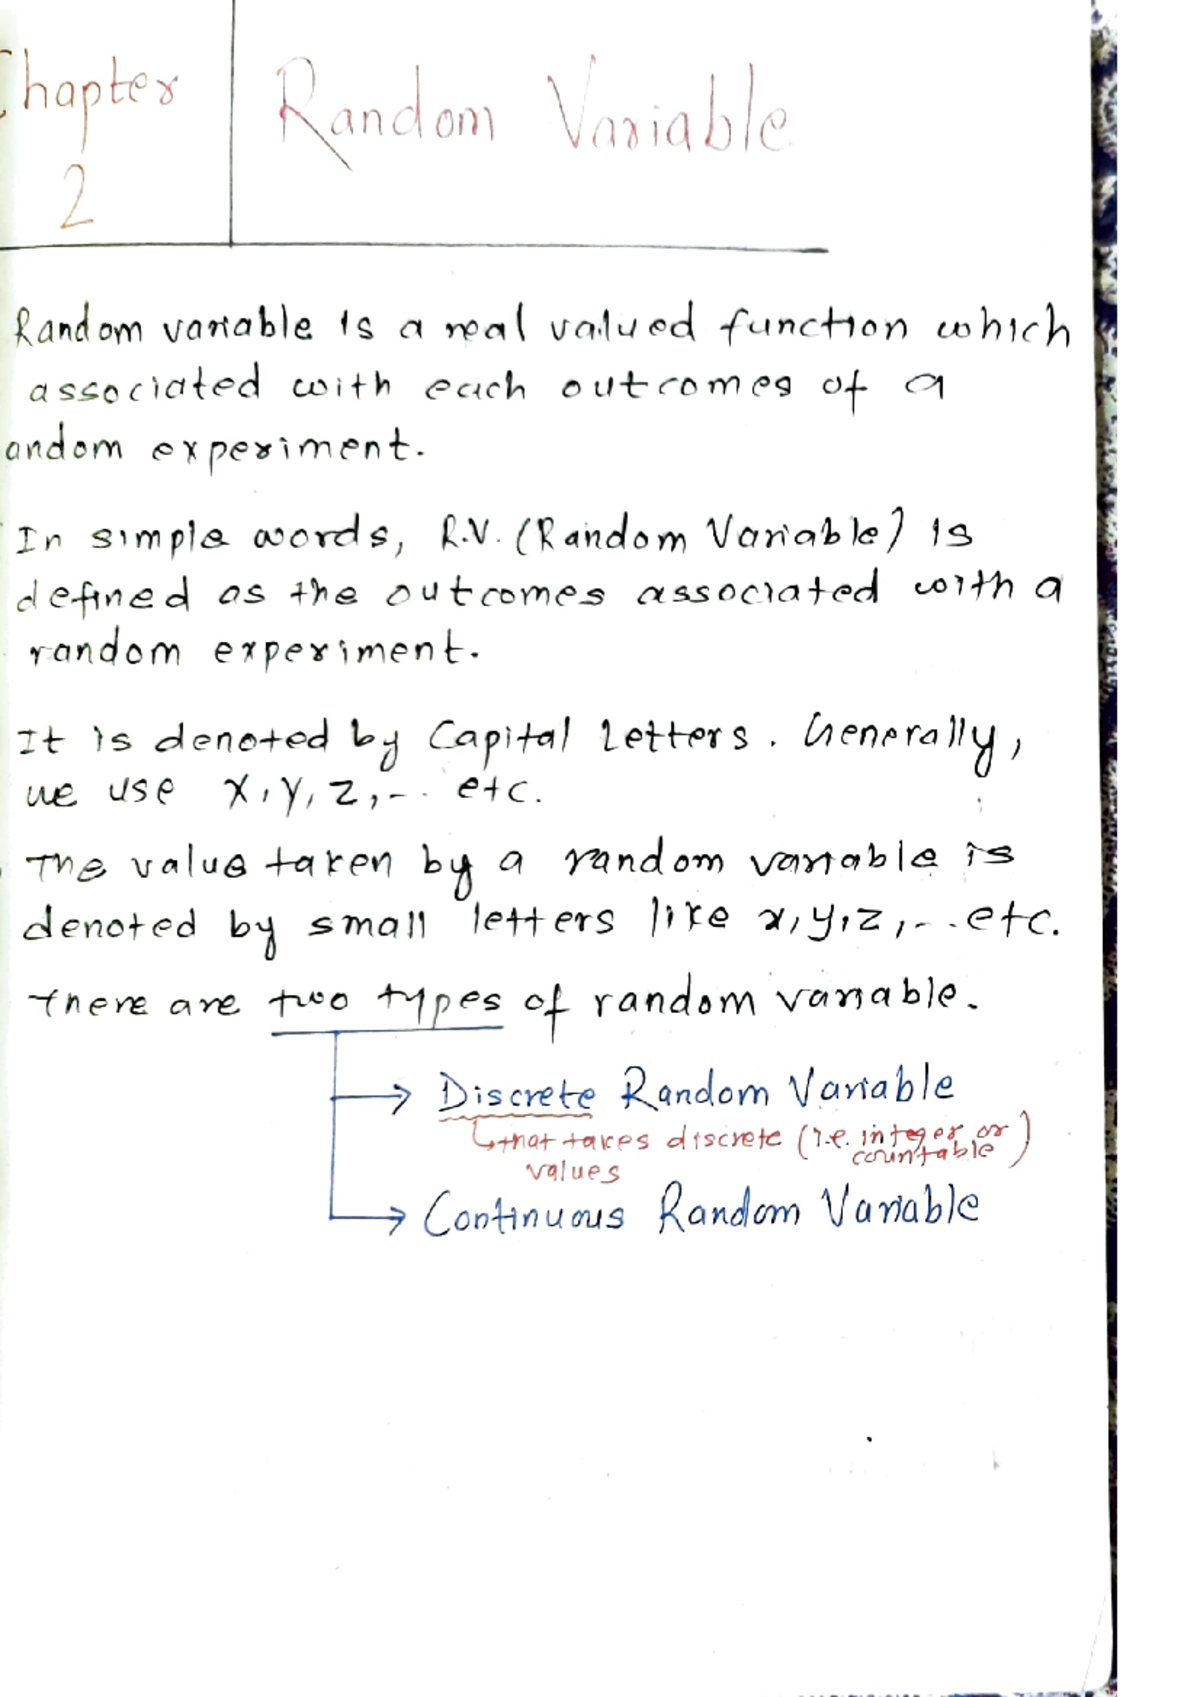 Chapter
2
Random Variable
Random variable is a real valued function which
associated with each outcomes of a
andom experiment.
In simple words, R.V. (Random Variable) is
defined as the outcomes associated with a
random experiment.
It is denoted by Capital Letters. Generally,
we use X, Y, Z, -.. etc.
The value taken by a random variable is
denoted by small letters like x, y, z, -.. etc.
There are two types of random variable.
Discrete Random Variable
that takes discrete (i.e. integer or
countable)
values
Continuous Random Variable